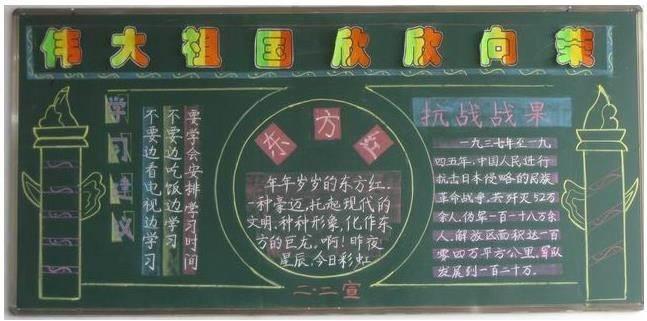 伟大祖国欣欣向荣
学习建议
要学会安排学习时间
不要边吃饭边学习
不要边看电视边学习
东方
年年岁岁的东方红,
一种豪迈,托起现代的
文明,种种形象,化作东
方的巨龙。啊!昨夜
星辰,今日彩虹
二·二宣
抗战战果
一九三七年至一九
四五年,中国人民进行
抗击日本侵略的民族
革命战争,共歼灭52万
余人,伪军一百一十八万余
人,解放区面积达一百
零四万平方公里,军队
发展到一百二十万。